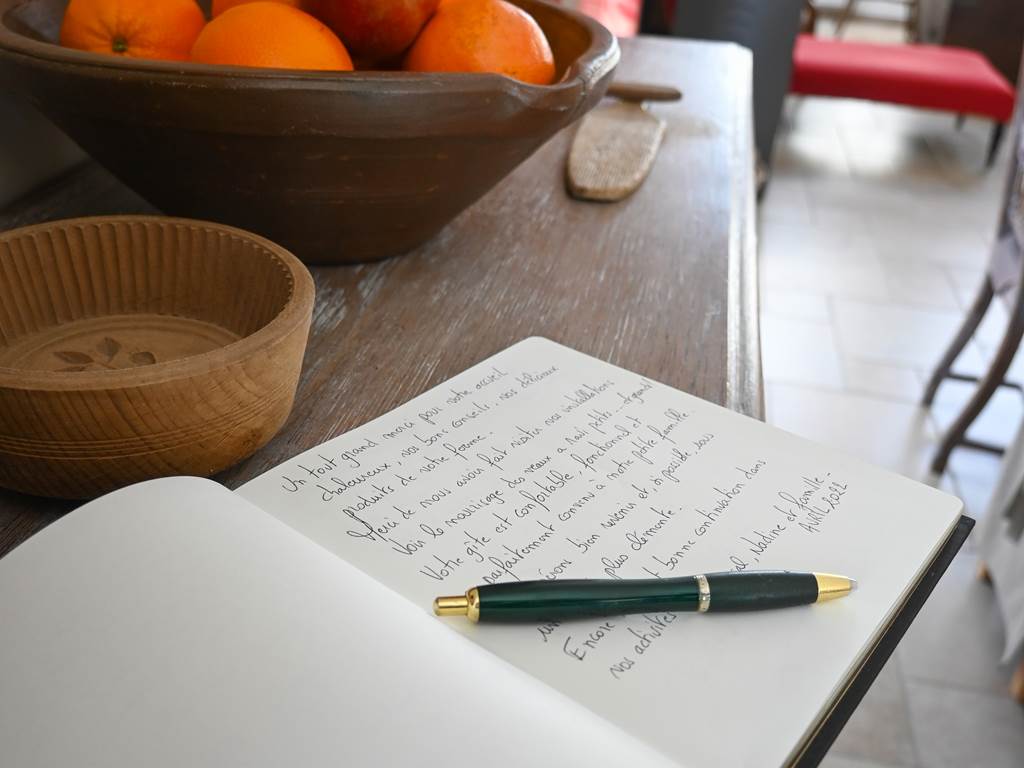 Un tout grand merci pour votre accueil
chaleureux, vos bons conseils, vos délicieux
produits de votre ferme.
Merci de nous avoir fait visiter vos installations
Voir le nourrissage des veaux a ravi petits et grand
Votre gîte est confortable, fonctionnel et
parfaitement convenu à notre petite famille.
bien revenir et si possible, sous
plus clémente.
Encore bonne continuation dans
vos activités
Nadine et famille -
AVRIL 2022